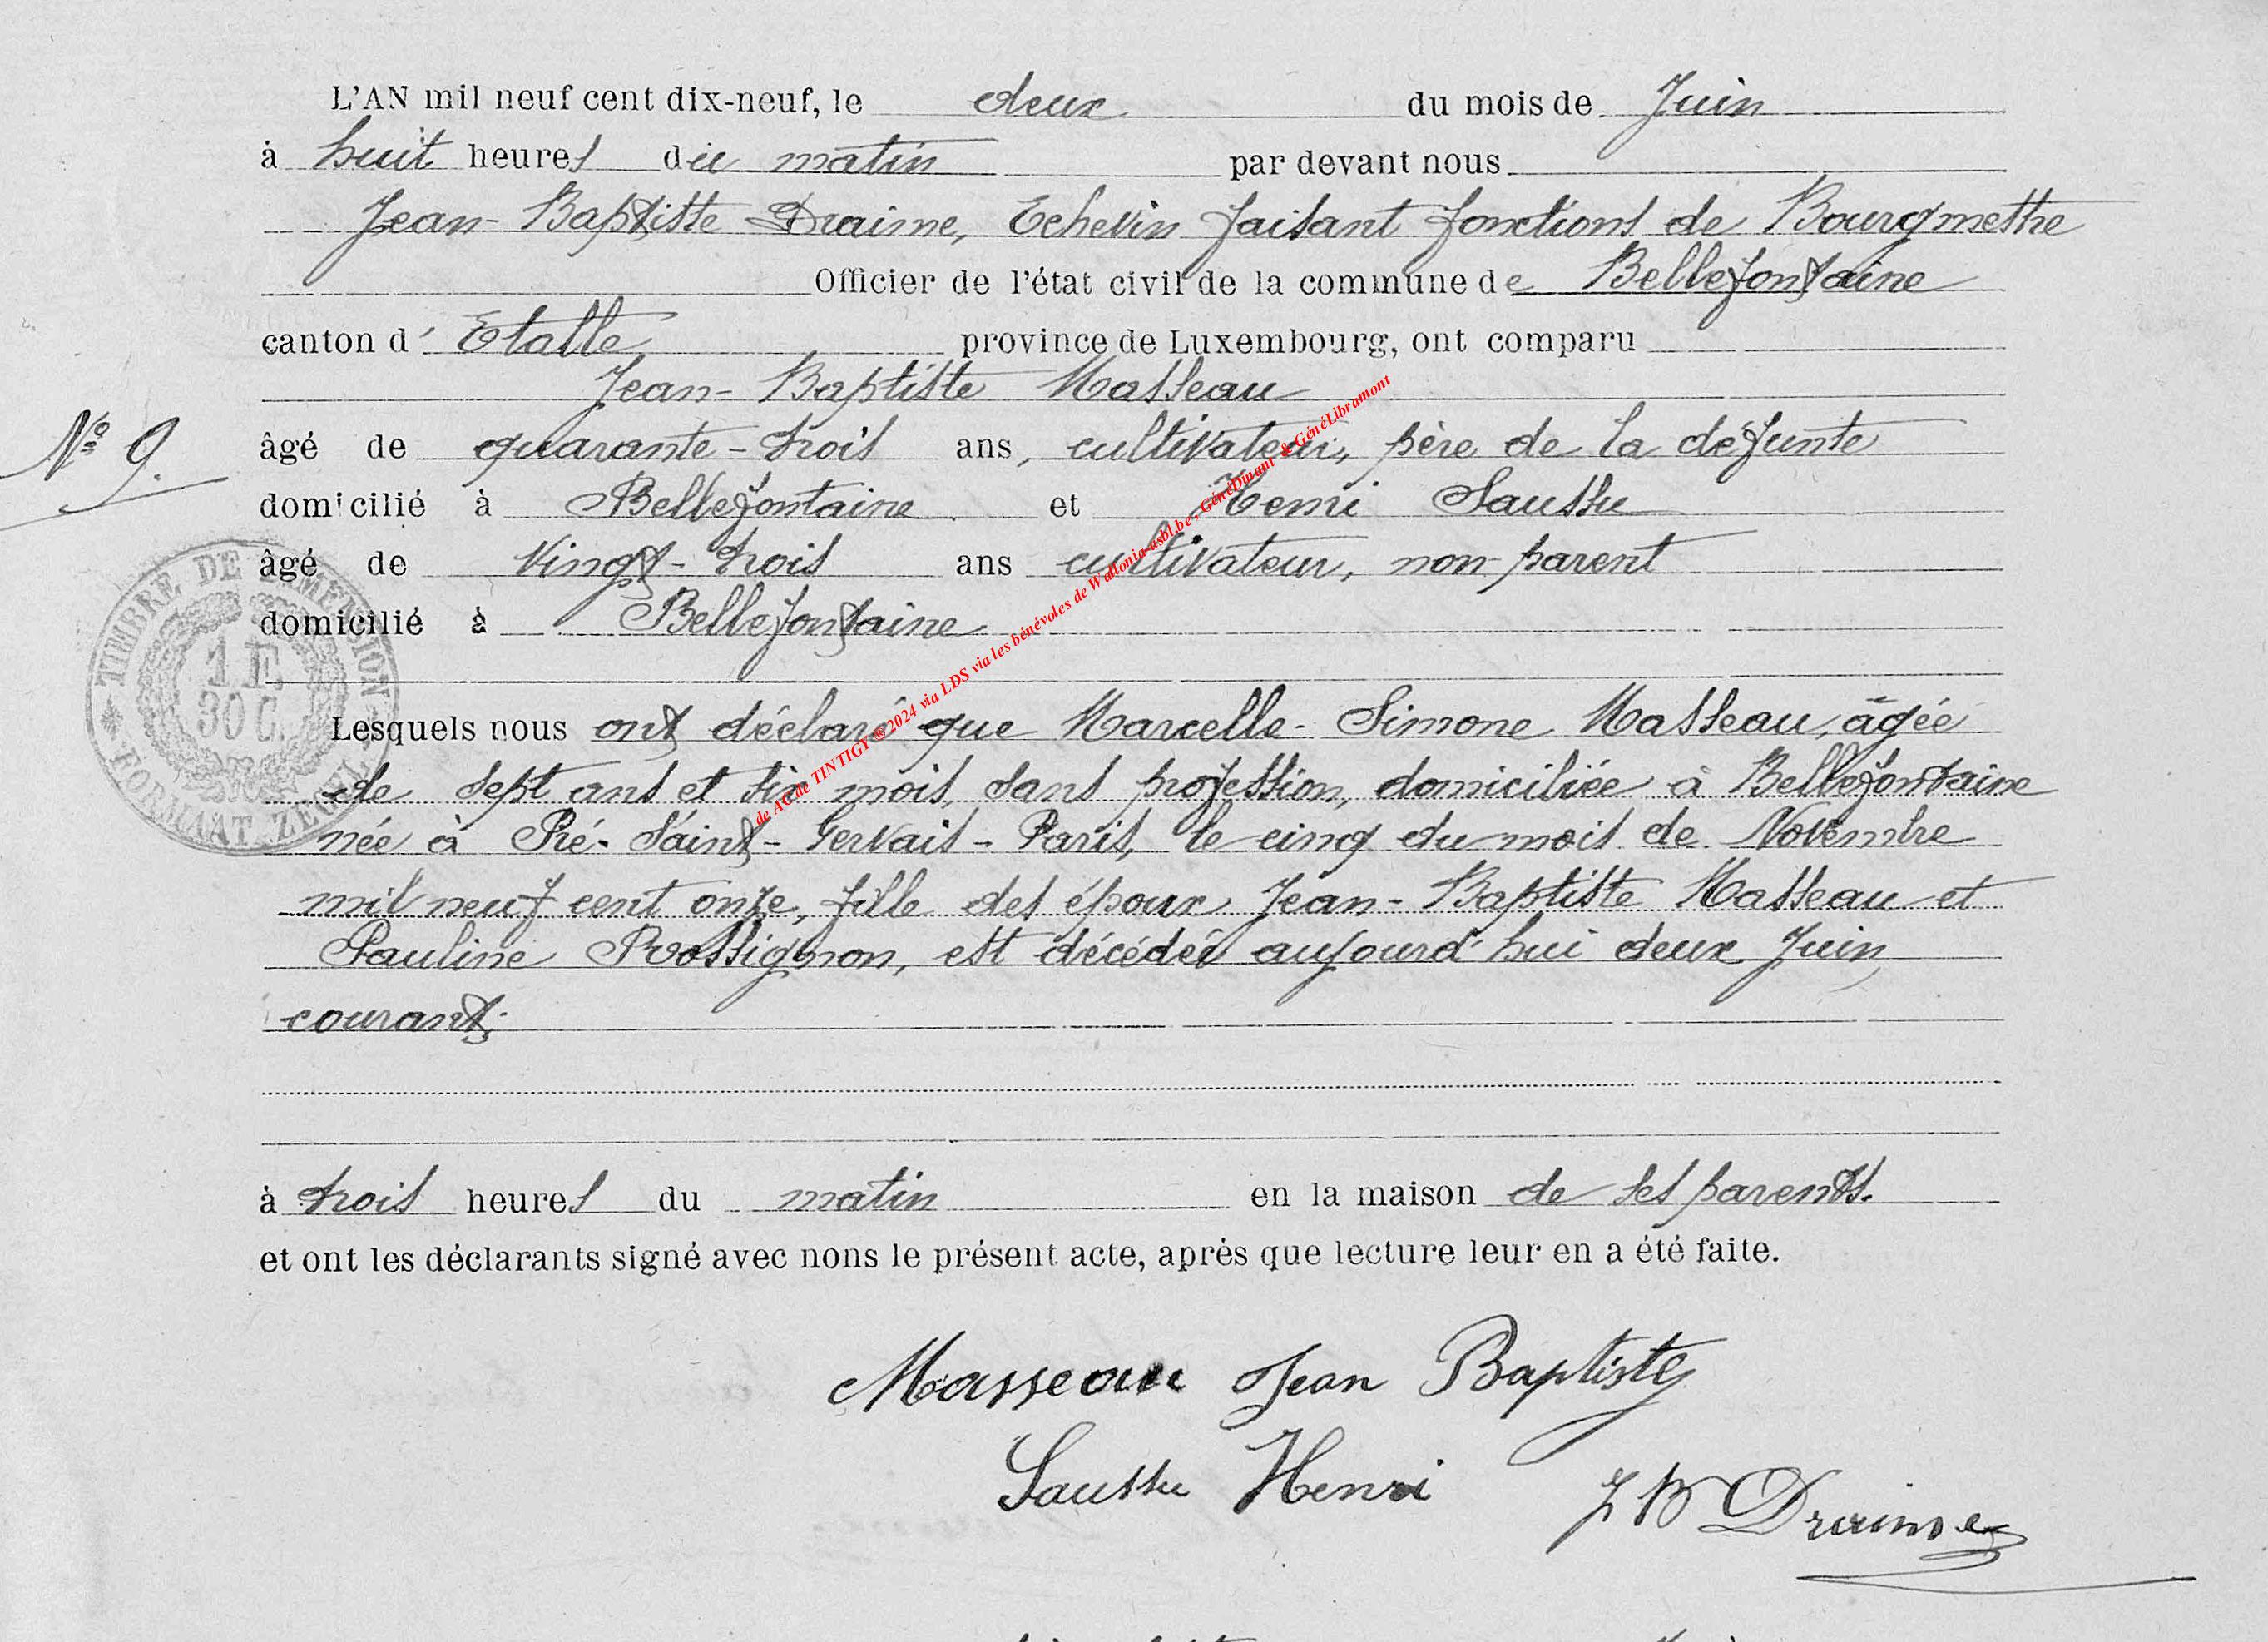 L'AN mil neuf cent dix-neuf, le deux du mois de Juin
à huit heures du matin par devant nous
Jean-Baptiste Draime, Echevin faisant fonctions de Bourgmestre
Officier de l'état civil de la commune de Bellefontaine
canton d' Etalle province de Luxembourg, ont comparu
Jean-Baptiste Masseau
N° 9.
âgé de quarante-trois ans, cultivateur, père de la défunte
domicilié à Bellefontaine et Henri Saussu
âgé de vingt-trois ans cultivateur, non parent
domicilié à Bellefontaine
TIMBRE DE DIMENSION
1 F.
30 C.
FORMAAT ZEGEL
Lesquels nous ont déclaré que Marcelle-Simone Masseau, âgée
de sept ans et six mois, sans profession, domiciliée à Bellefontaine
née à Pré-Saint-Gervais-Paris, le cinq du mois de Novembre
mil neuf cent onze, fille des époux Jean-Baptiste Masseau et
Pauline Rossignon, est décédée aujourd'hui deux Juin
courant,
à trois heures du matin en la maison de ses parents.
et ont les déclarants signé avec nons le présent acte, après que lecture leur en a été faite.
Masseau Jean Baptiste
Saussu Henri
J B Draime
de AG de TINTIGY © 2024 via LDS via les bénévoles de Wallonia-asbl.be - GénéDinant & GénéLibramont